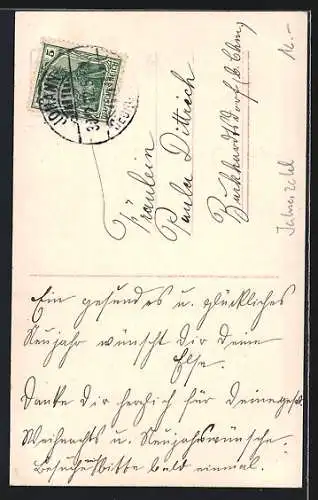 Fräulein
Paula Dittrich
Burkhardtsdorf b. Chem.
14.-
Jahreszahl
5
DEUTSCHES REICH
Ein gesundes u. glückliches
Neujahr wünscht dir deine
Else.
Danke dir herzlich für deine gesd.
Weihnachts u. Neujahrswünsche.
Besuche uns bitte bald einmal.